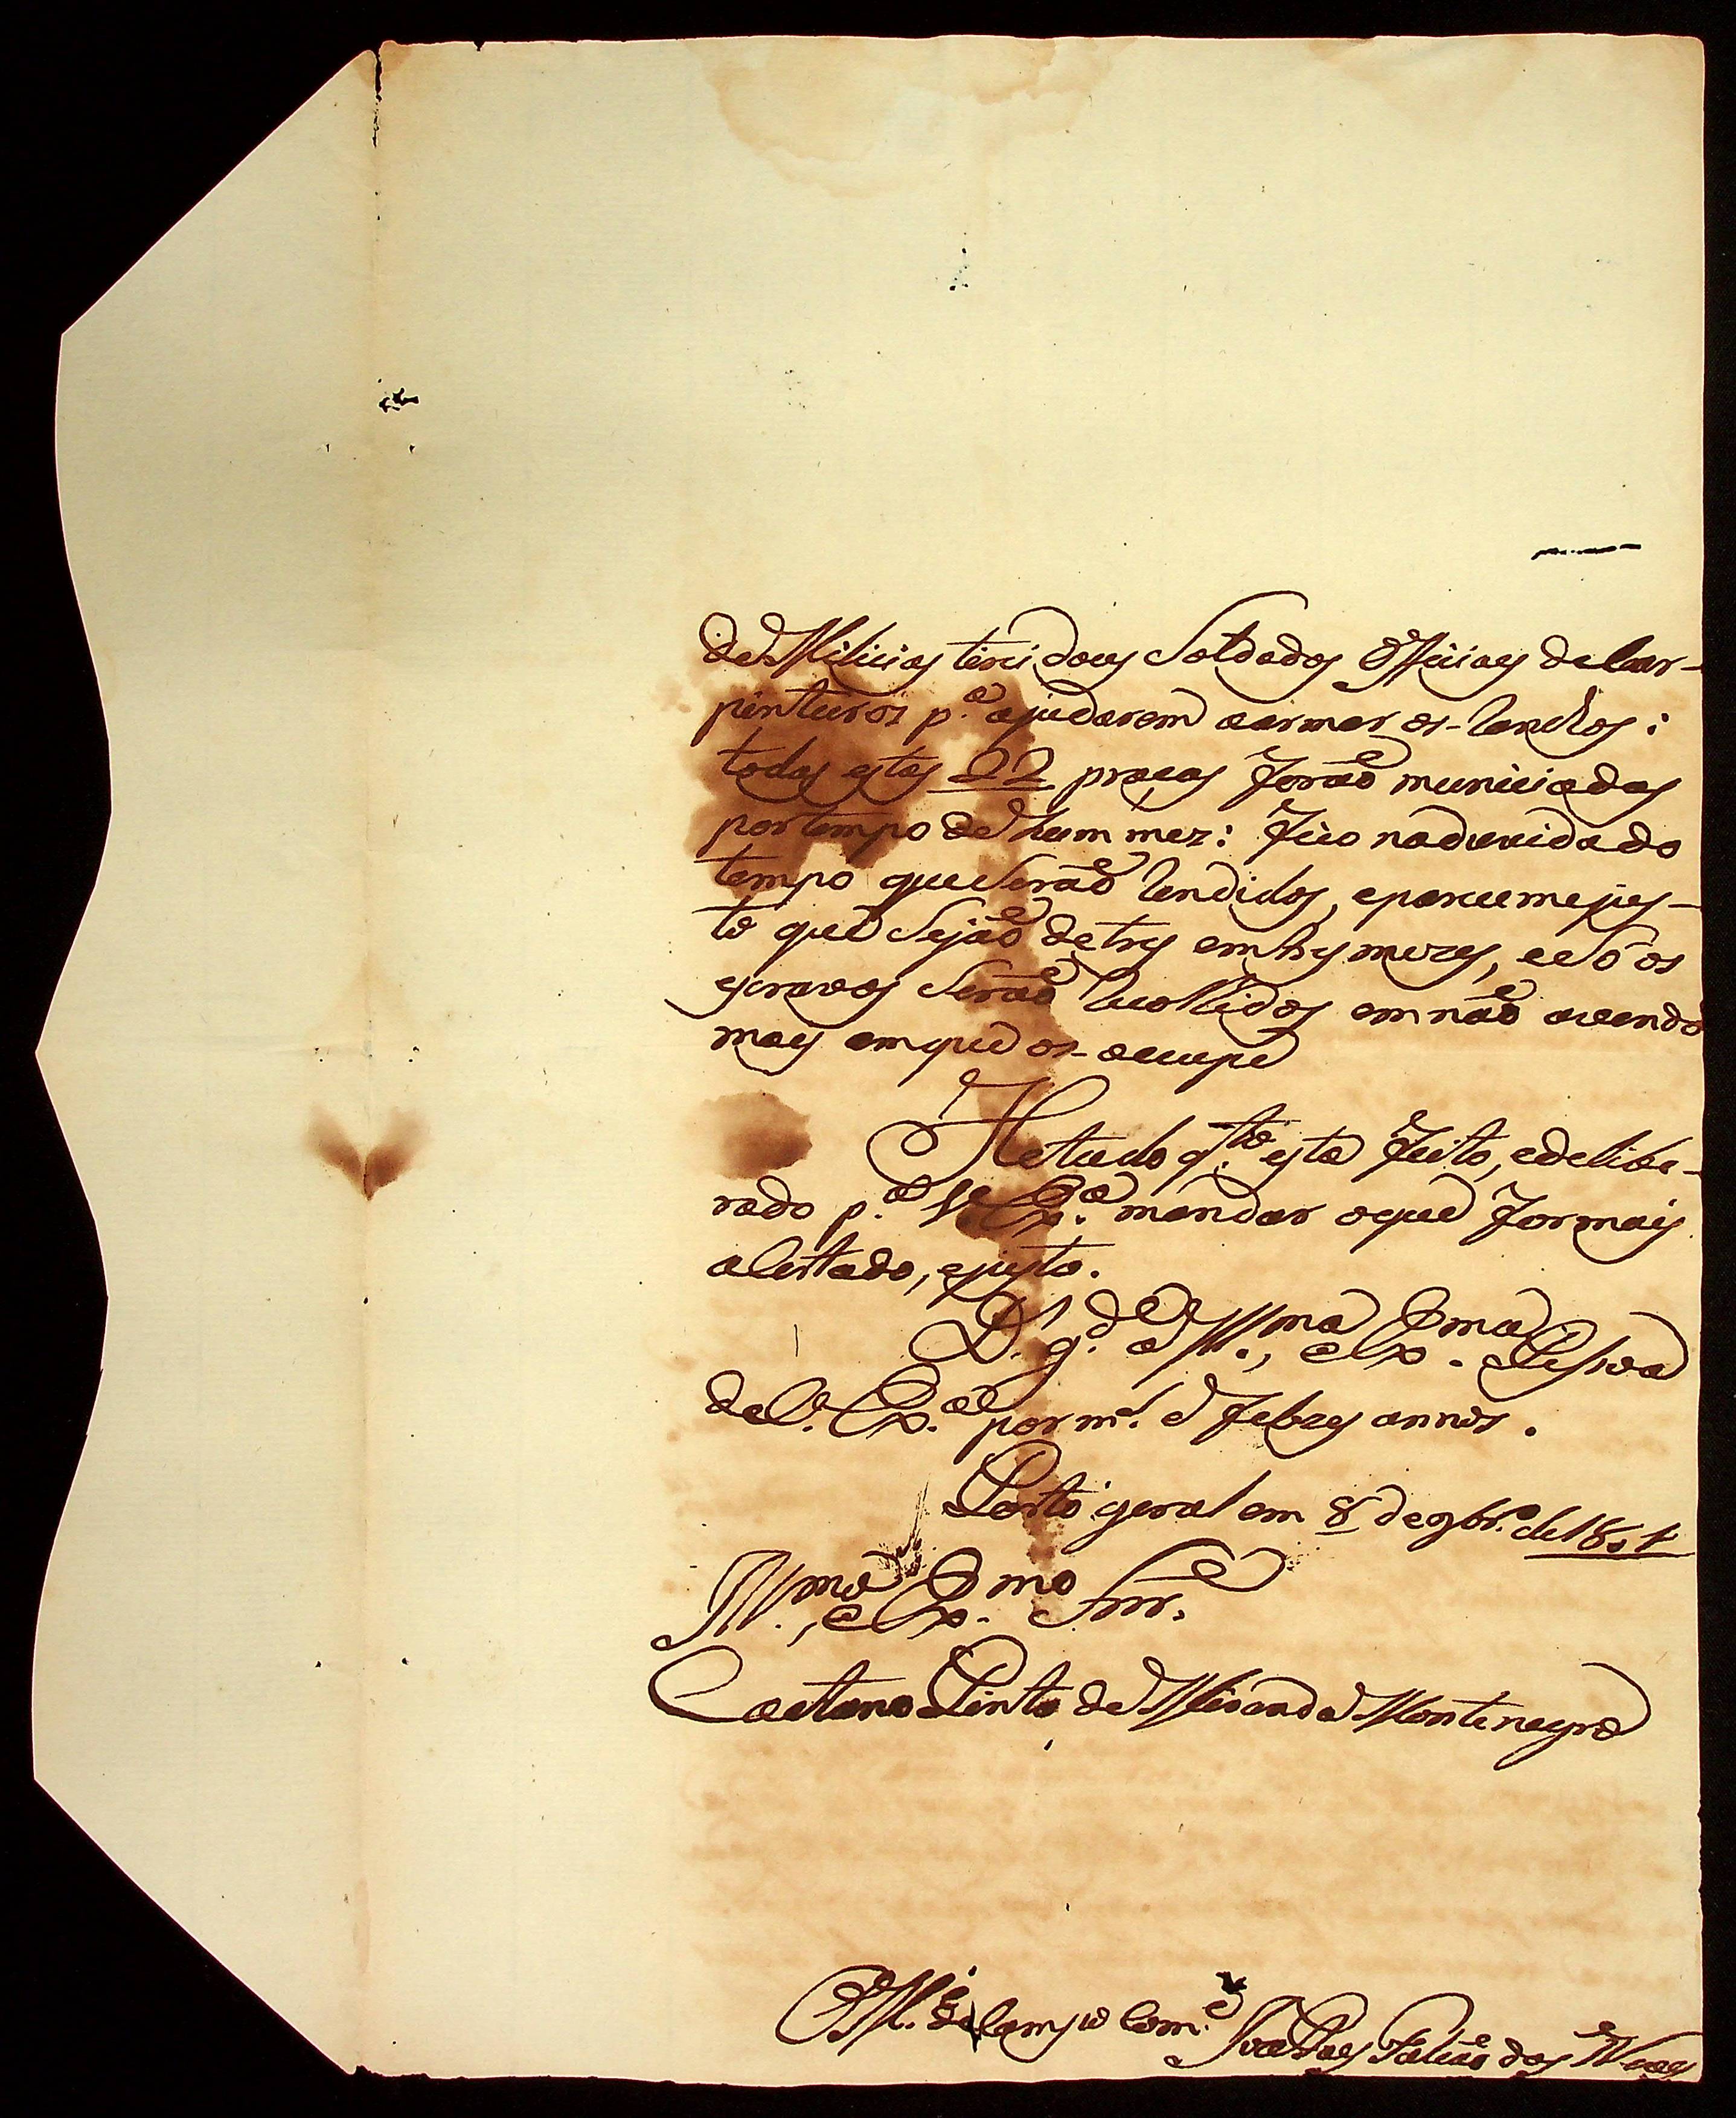 de Milicias tirei dous Soldados Officiaes de Car-
pinteiros p.ª ajudarem a armar os ranchos:
todas estas 22 praças forão municiadas
por tempo de hum mez: fico na duvida do
tempo que serão rendidos, e parece me jus-
to que sejão de tres em tres mezes, e só os
escravos serão recolhidos em não avendo
mais em que os ocupe
He tudo q.to esta feito, e delibe-
rado p.ª V. Ex.ª mandar o que for mais
acertado, e justo.
D.s g.de a Ill.ma, e Ex.ma Pessoa
de V. Ex.ª por m.s e felizes annos.
Porto geral em 8 de 9br.o de 1801
Ill.mo, e Ex.mo Snr.
Caetano Pinto de Miranda Montenegro
O M.e de Campo Com.e
Joze Paes Falcão das Neves